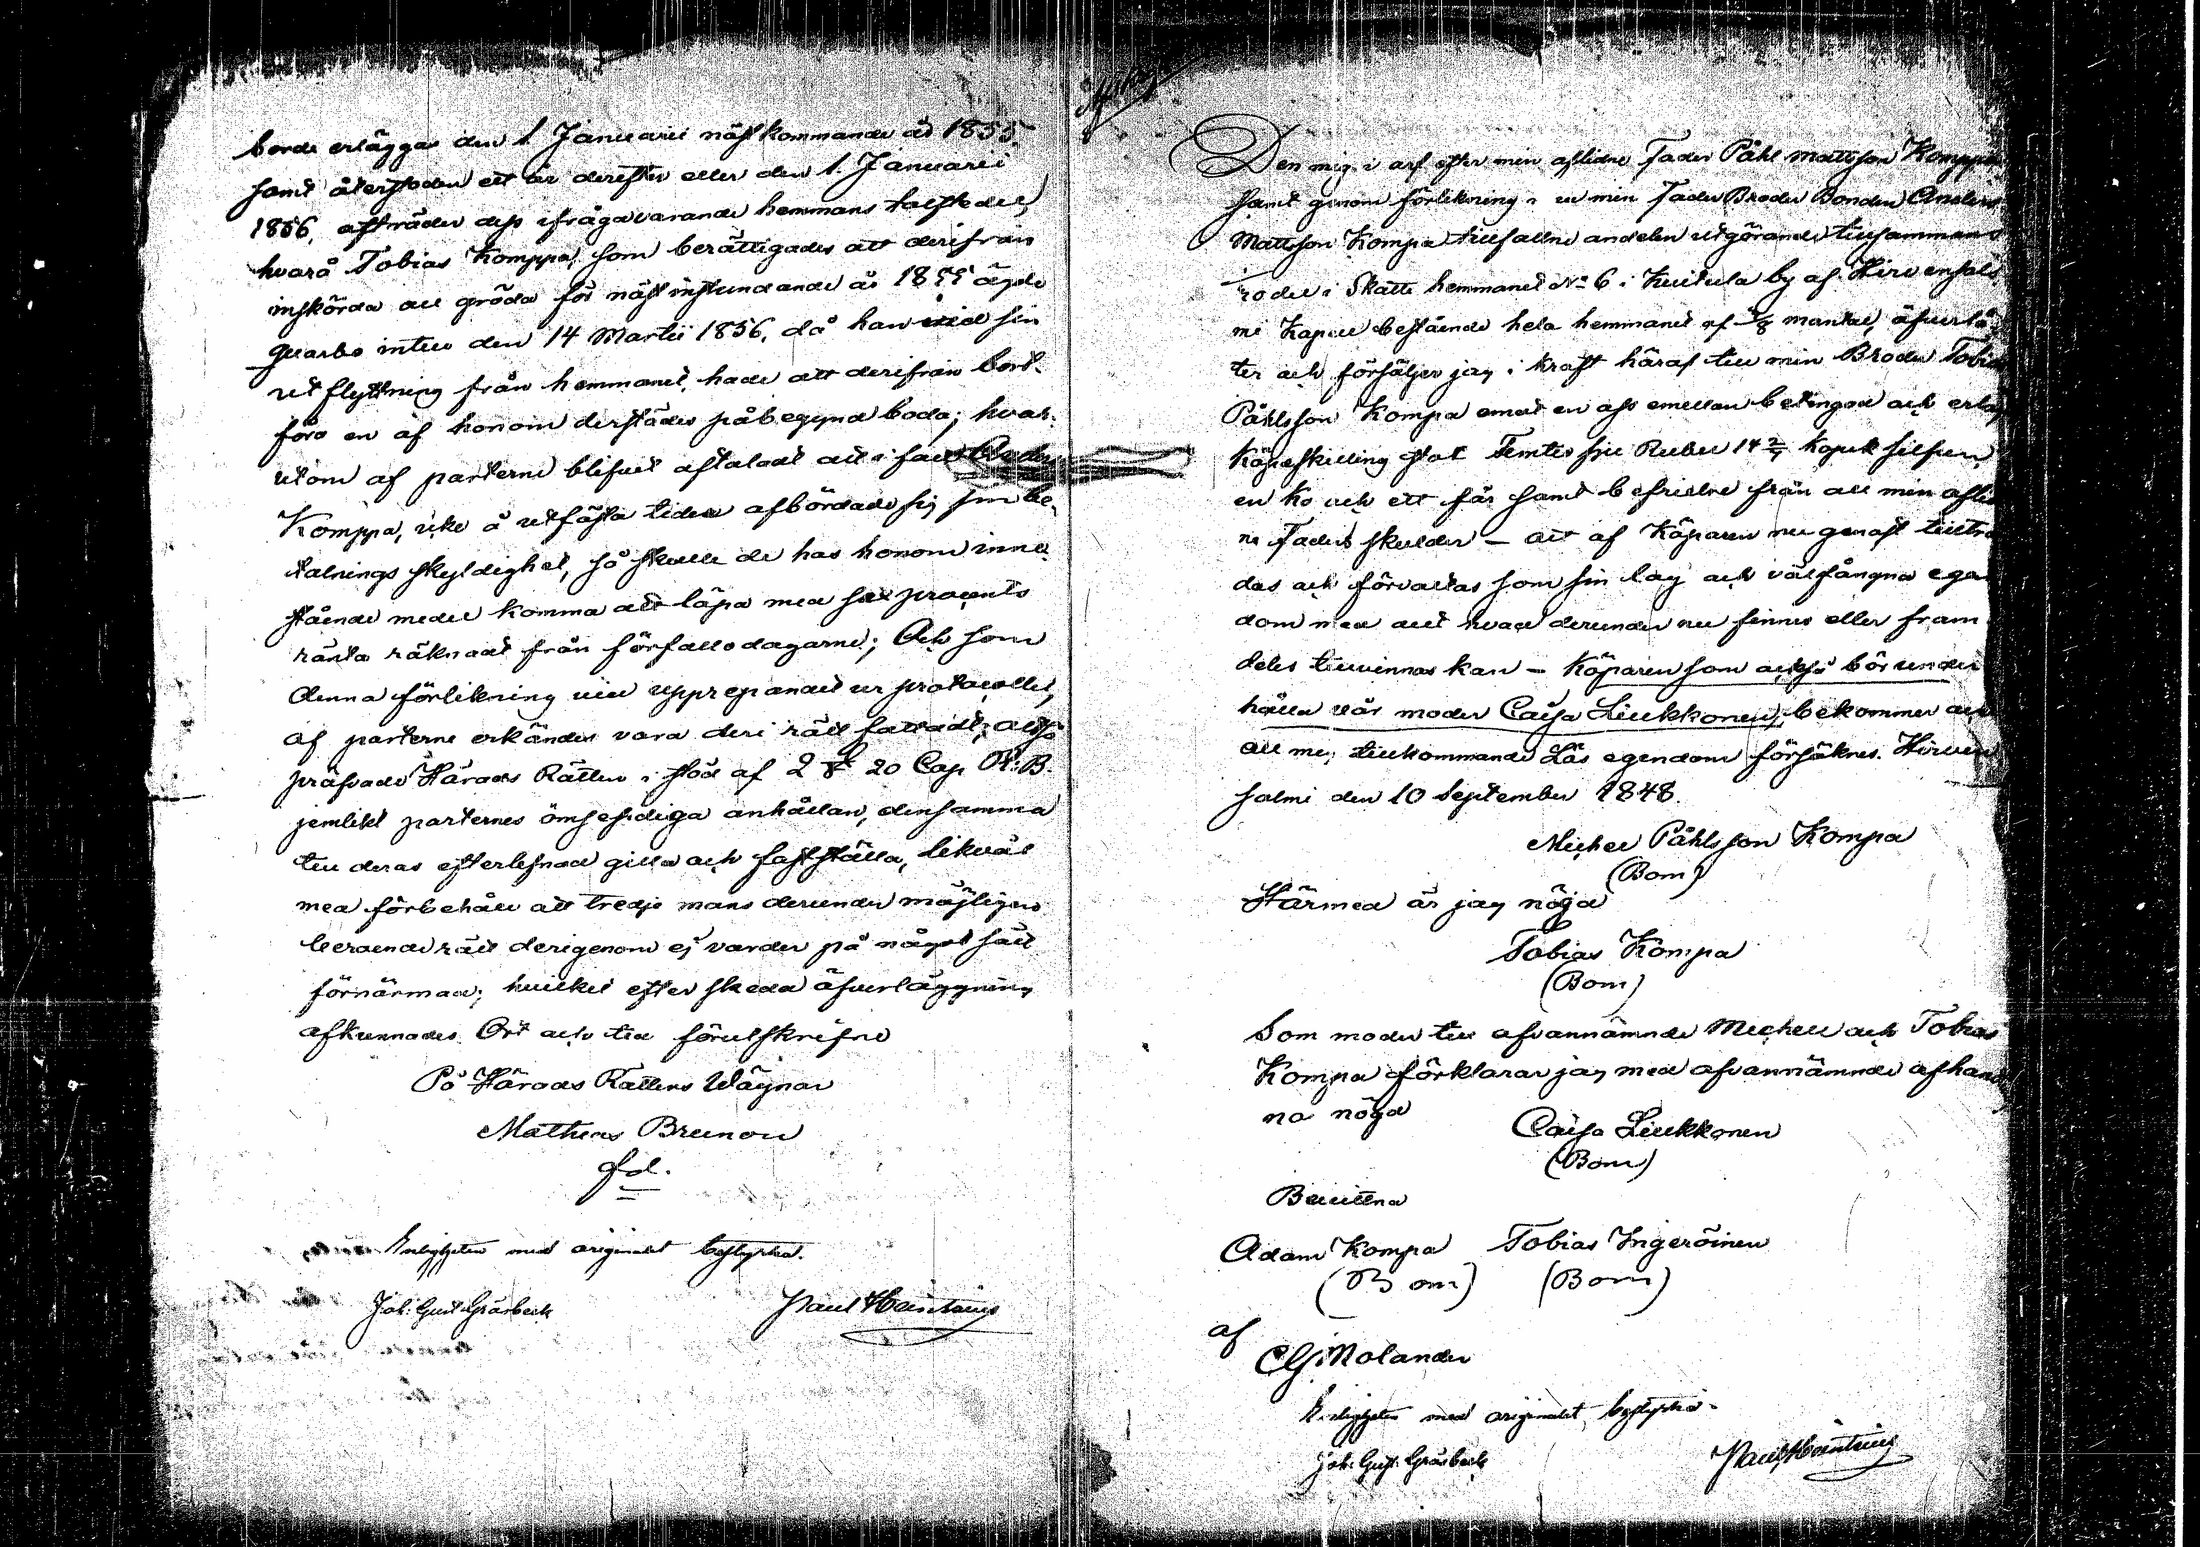 borde erläggas den 1 Januarii nästkommande år 1855.
samt återstoden ett år derefter eller den 1. Januarii
1856, afträder dess ifrågavarande hemmans
hvarå Tobias Komppa, som berättigades att derifrån
inskörda all gröda för nästinstundande år 1855 ägde
qvarbo intill den 14 Martii 1856, då han vid sin
utflyttning från hemmanet, hade att derifrån bort-
föra en af honom derstädes påbegynd boda; hvar-
utom af parterne blifvit aftaladt att i fall
Komppa, icke å utfästa tider afbördade sig sin be-
talnings skyldighet, så skulle de hos honom inne-
stående medel komma att löpa med sex procents
ränta räknadt från förfallodagarne; Och som
denna förlikning vid upprepandet ur protocollet,
af parterne erkändes vara deri rätt fattadt; altså
pröfvade Härads Rätten i stöd af 2 § 20 Cap R:B.
jemlikt parternes ömsesidiga anhållan, densamma
till deras efterlefnad gilla och fastställa, likväl
med förbehåll att tredje mans derunder möjligen
beroende rätt derigenom ej varder på något sätt
förnärmad; hvilket efter skedd öfverläggning
afkunnades. Ort och tid förutskrifne
På Härads Rättens Wägnar
Mathens Brunou
Enligheten med originalet bestyrka.
Joh: Gust Gråsbeck Paul Heintzius
Den mig i arf efter min aflidne Fader Påhl Mattsson Komppa
samt genom förlikning af min Fader Broder Bonden Anders
Mattsson Kompa tillfallne andelen utgörande tillsammans
i Skatte hemmanet No 6 i Kuitula by af Hirvensal-
mi Kapell bestående hela hemmanet af mantal, öfverlå-
ter och försäljer jag i kraft häraf till min Broder Tobias
Påhlsson Kompa emot en oss emellan betingad och erlagd
Köpeskilling stor Femtio sju Rubel 14 2/7 Kopek silfver,
en ko och ett får samt befrielse från all min aflid-
ne Faders skulder — att af Köparen nu genast tillträ-
das och förvaltas som sin lag och välfångna egen-
dom med allt hvad derunder nu finnes eller fram-
deles tillvinnas kan — Köparen som också bör under-
hålla vår moder Caisa Liukkonen, bekommer
all mig tillkommande Lös egendom försäkres. Hirven-
salmi den 10 September 1848.
Michel Påhlsson Kompa
(Bom)
Härmed är jag nögd
Tobias Kompa
(Bom)
Som moder till ofvannämnde Michell och Tobias
Kompa förklarar jag med ofvannämnde afhand-
na nögd Caisa Liukkonen
(Bom)
Bevittna
Adam Kompa Tobias Ingeröinen
(Bom) (Bom)
af
CG: Molander
Enligheten med originalet bestyrka.
Joh: Gust: Gråsbeck Paul Heintzius